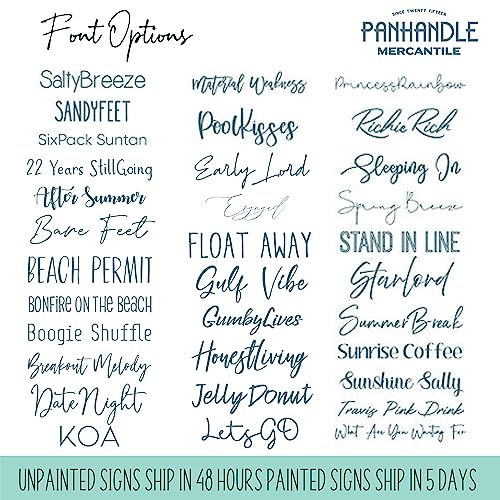 Font Options
SINCE TWENTY FIFTEEN
PANHANDLE
MERCANTILE
SaltyBreeze
SANDYFEET
SixPack Suntan
22 Years StillGoing
After Summer
Bare Feet
BEACH PERMIT
BONFIRE ON THE BEACH
Boogie Shuffle
Breakout Melody
Date Night
KOA
Material Weakness
PoolKisses
Early Lord
Engaged
FLOAT AWAY
Gulf Vibe
GumbyLives
HonestLiving
JellyDonut
LetsGO
PrincessRainbow
Richie Rich
Sleeping In
Spring Breeze
STAND IN LINE
Starlord
SummerBreak
Sunrise Coffee
Sunshine Sally
Travis Pink Drink
What Are You Waiting For
UNPAINTED SIGNS SHIP IN 48 HOURS PAINTED SIGNS SHIP IN 5 DAYS